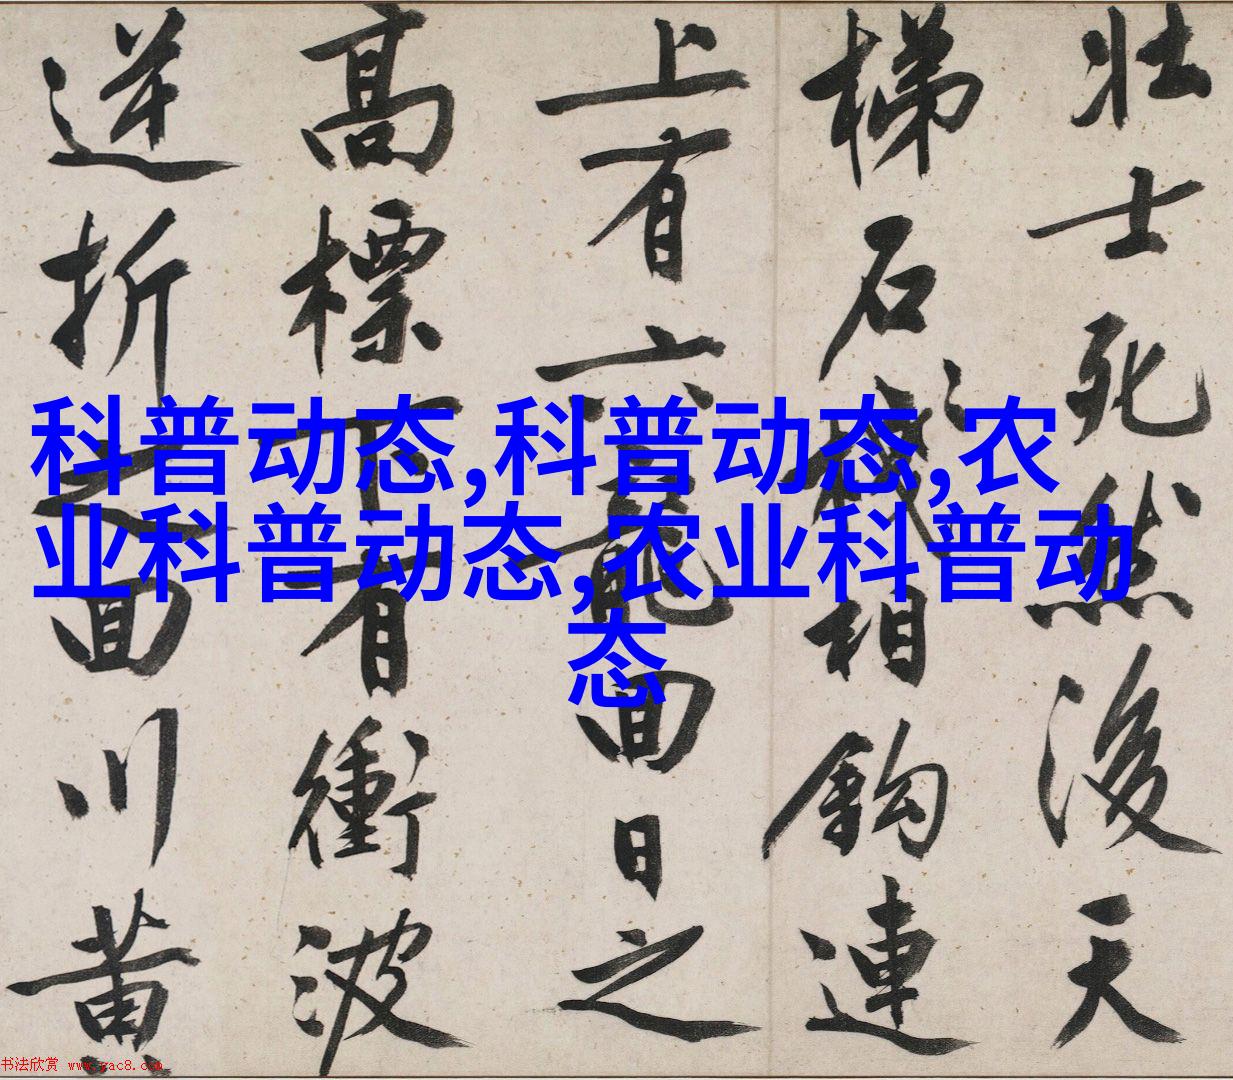 科普动态,科普动态,农
业科普动态,农业科普动
态
壮士死然後天
梯石棧相鈎連
上有六龍回日之
高標下有衝波
逆折之回川黄
书法欣赏 www.yac8.com